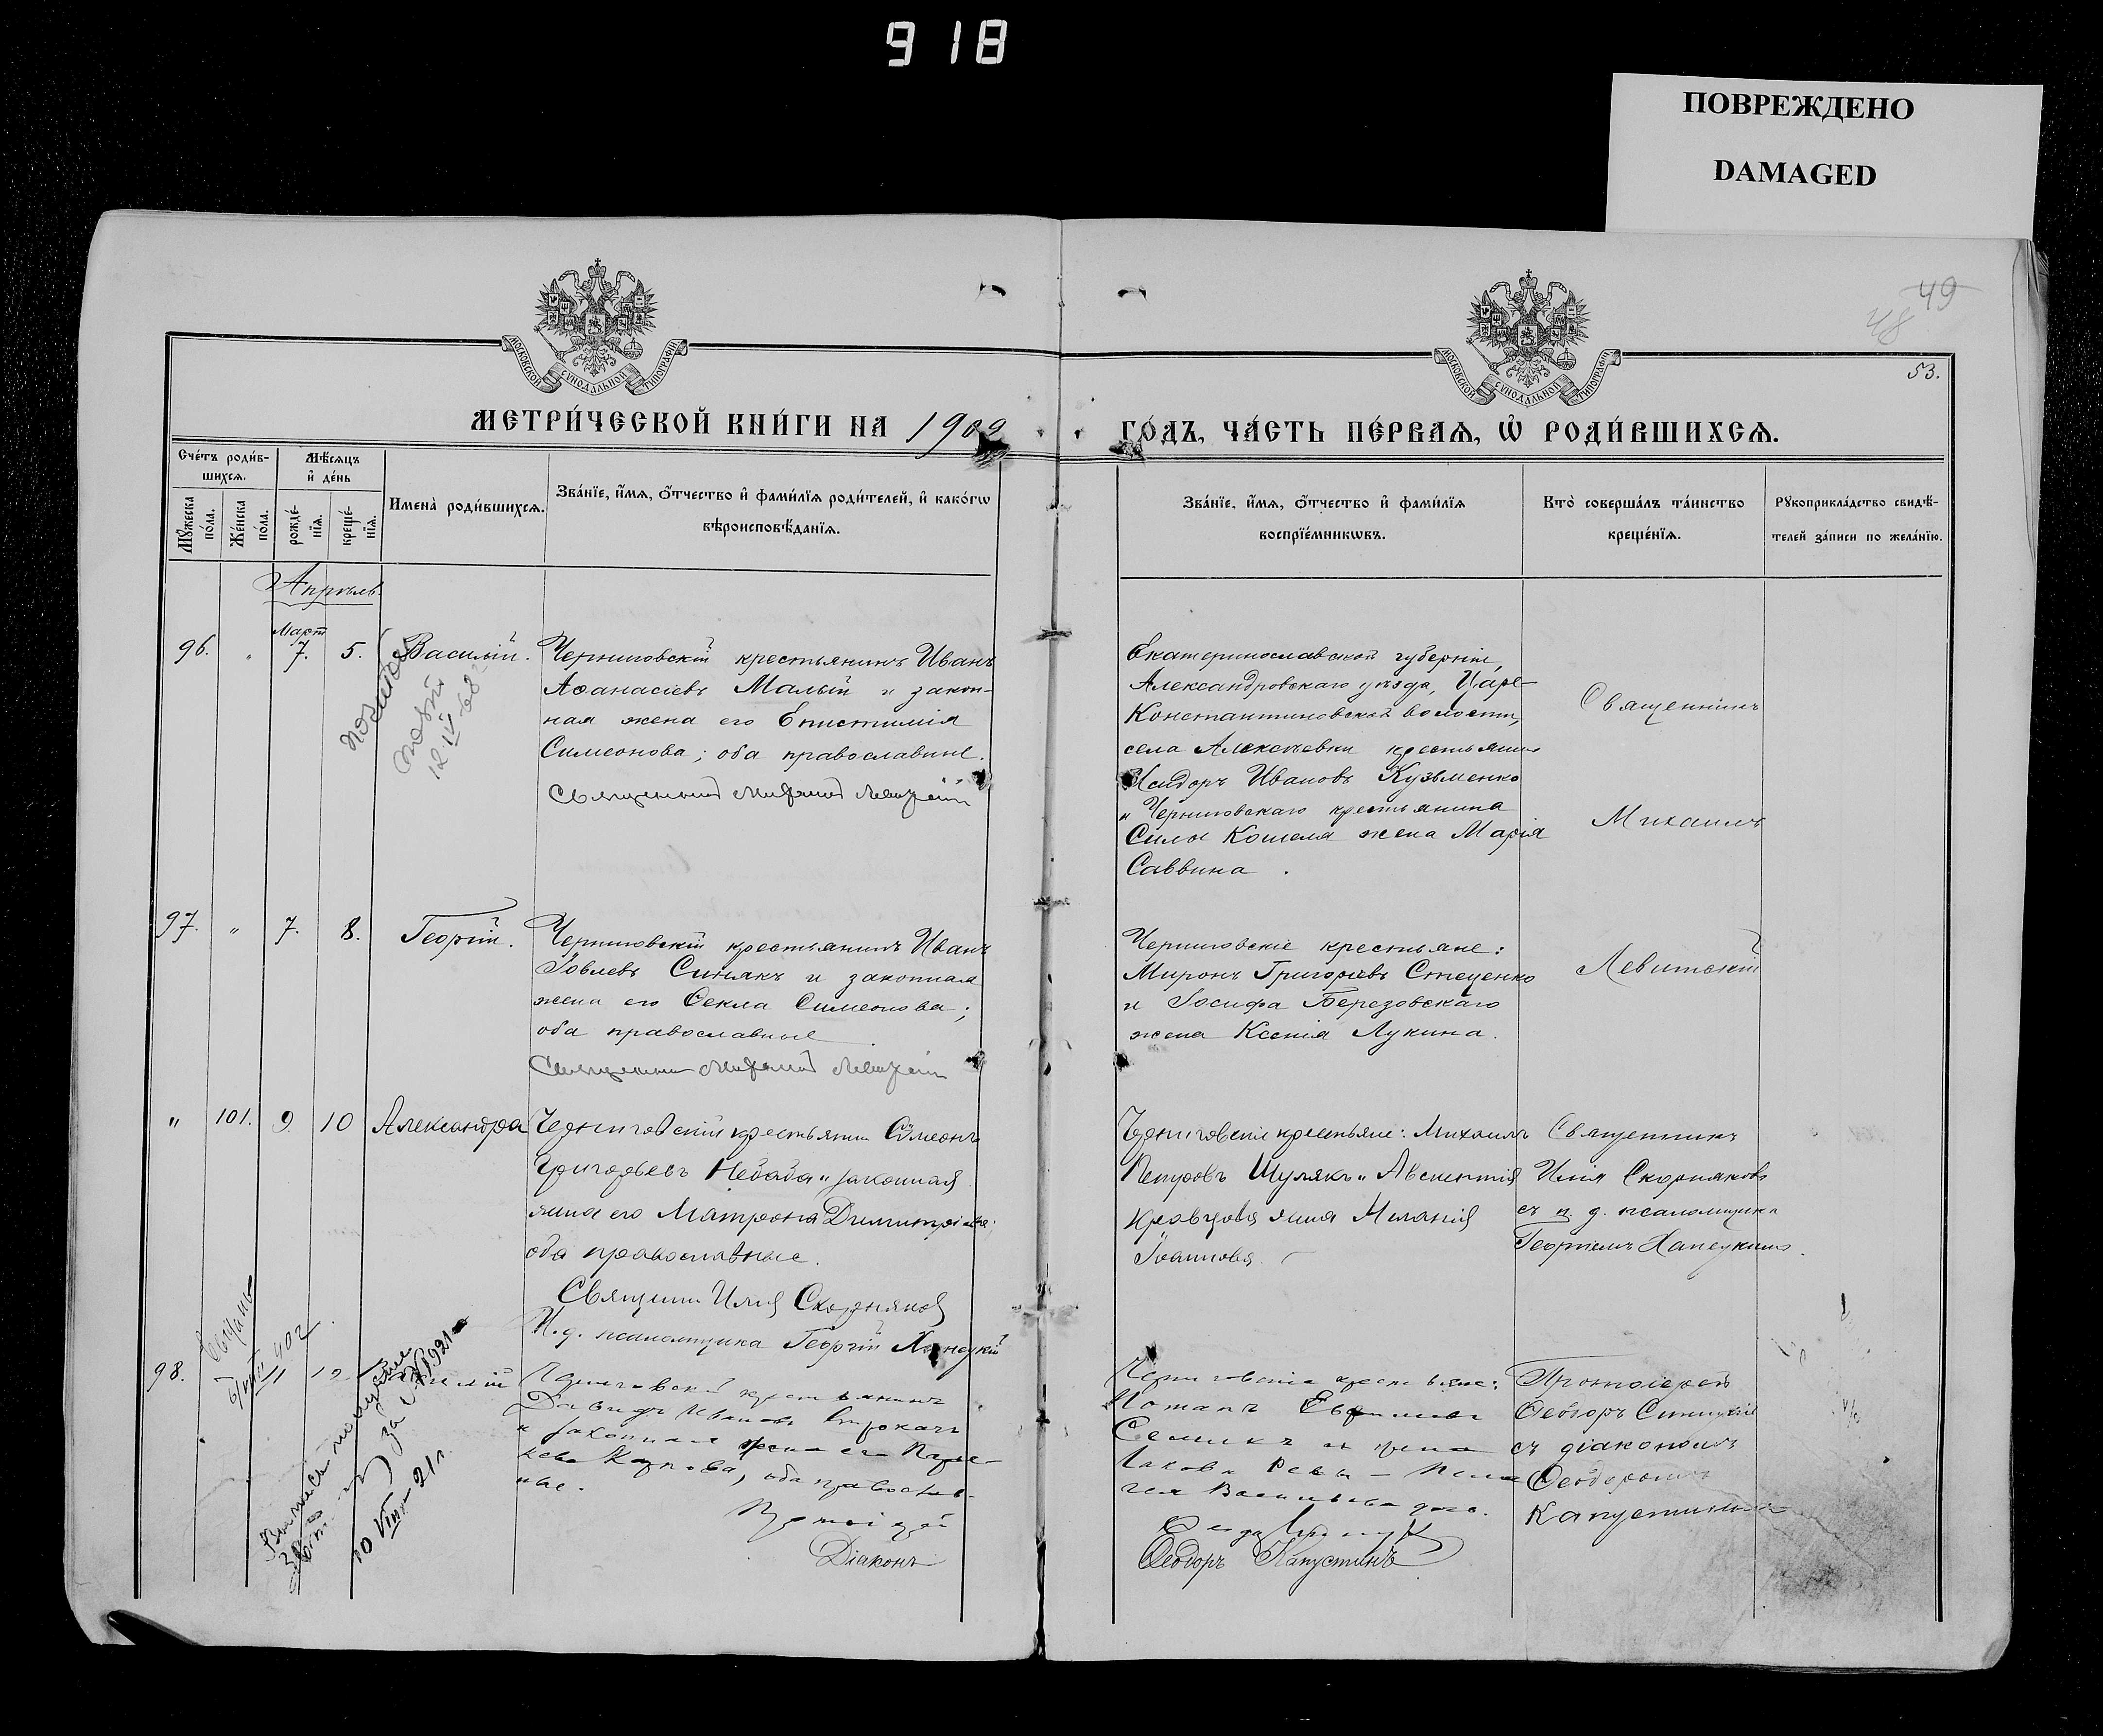 918
ПОВРЕЖДЕНО
DAMAGED
49
48
53.
МОСКОВСКОЙ СѴНОДАЛЬНОЙ ТИПОГРАФІИ
МОСКОВСКОЙ СѴНОДАЛЬНОЙ ТИПОГРАФІИ
МЕТРИ́ЧЕСКОЙ КНИ́ГИ НА 1902
ГО́ДЪ, ЧА́СТЬ ПЕ́РВАѦ, Ѡ҆ РОДИ́ВШИХСѦ.
Сче́тъ роди́в-
шихсѧ.
Мꙋ́жеска по́ла.
Же́нска по́ла.
Мѣ́сѧцъ
и҆ де́нь
рожде́-нїѧ.
креще́-нїѧ.
Имена̀ роди́вшихсѧ.
Зва́нїе, и҆́мѧ, ѻ҆́тчество и҆ фами́лїѧ роди́телей, и҆ како́гѡ
вѣроисповѣ́данїѧ.
Зва́нїе, и҆́мѧ, ѻ҆́тчество и҆ фами́лїѧ
воспрїе́мникѡвъ.
Кто̀ соверша́лъ та́инство
креще́нїѧ.
Рꙋкоприкла́дство свидѣ́-
телей за́писи по жела́нїю.
Апрѣль.
Март
96. " 7. 5. Василій.
12 IV 68
Черниговскій крестьянинъ Иванъ
Аѳанасіевъ Малый и закон-
ная жена его Епистимія
Симеонова; оба православные.
Священникъ Михаилъ Левитскій
Екатеринославской губерніи,
Александровскаго уѣзда, Царе-
Константиновской волости,
села Алексѣевки крестьянинъ
Исидоръ Ивановъ Кузьменко
и Черниговскаго крестьянина
Силы Кошеля жена Марія
Саввина.
Священникъ
Михаилъ
Левитскій
97. " 7. 8. Георгій.
Черниговскій крестьянинъ Иванъ
Іовлевъ Синякъ и законная
жена его Ѳекла Симеонова;
оба православные
Священникъ Михаилъ Левитскій
Черниговскіе крестьяне:
Миронъ Григорьевъ Стеценко
и Іосифа Березовскаго
жена Ксенія Лукина.
" 101. 9. 10 Александра
Черниговскій крестьянинъ Симеонъ
Григорьевъ Небаба и законная
жена его Матрона Димитріева;
оба православные.
Священникъ Илія Скорняковъ
И. д. псаломщика Георгій
Черниговскіе крестьяне: Михаилъ
Петровъ Шулякъ и Авксентія
Кравцова жена Меланія
Іоаннова.
Священникъ
Илія Скорняковъ
съ и. д. псаломщика
Георгіемъ
98. 11 12
902
1921
10 VIII 21 г.
Черниговскій крестьянинъ
Давидъ Ивановъ
и законная жена его Параске-
ва Карпова, оба православ-
ные.
Протоіерей
Діаконъ
Черниговскіе крестьяне:
Потапъ
и жена
Іакова Ревы
Васильева
Ѳеодоръ Капустинъ
Протоіерей
Ѳеодоръ Синицкій
съ діакономъ
Ѳеодоромъ
Капустинымъ